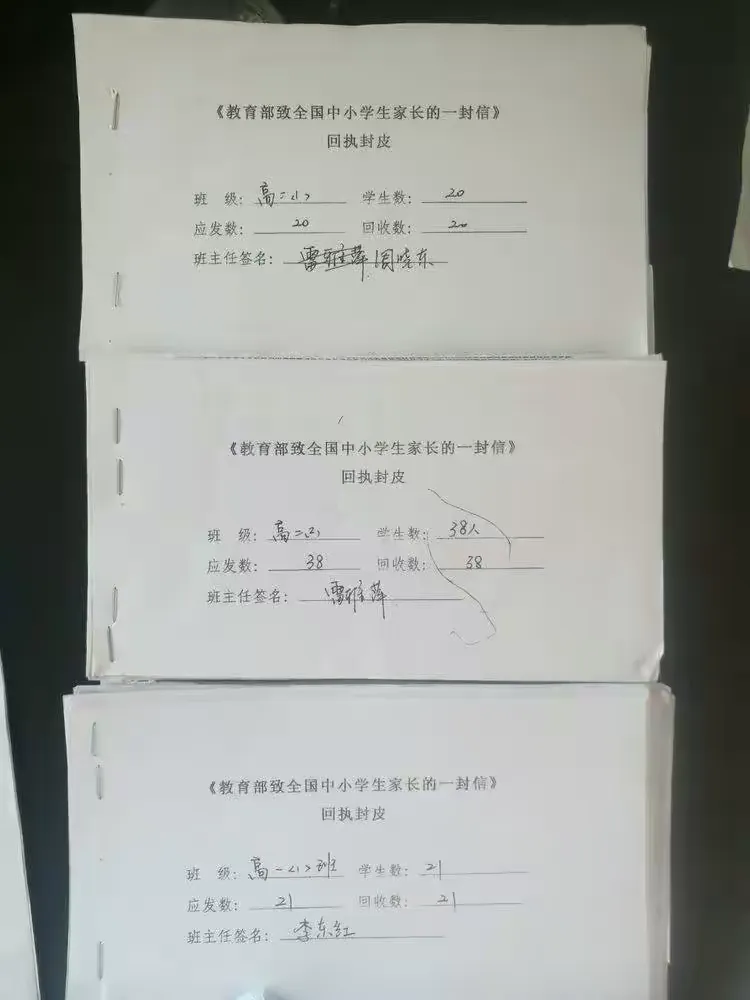 《教育部致全国中小学生家长的一封信》
回执封皮
班 级：高二<1> 学生数：20
应发数：20 回收数：20
班主任签名：雷雅萍 周晓东
《教育部致全国中小学生家长的一封信》
回执封皮
班 级：高二 学生数：38人
应发数：38 回收数：38
班主任签名：雷雅萍
《教育部致全国中小学生家长的一封信》
回执封皮
班 级：高一<1>班 学生数：21
应发数：21 回收数：21
班主任签名：李东红